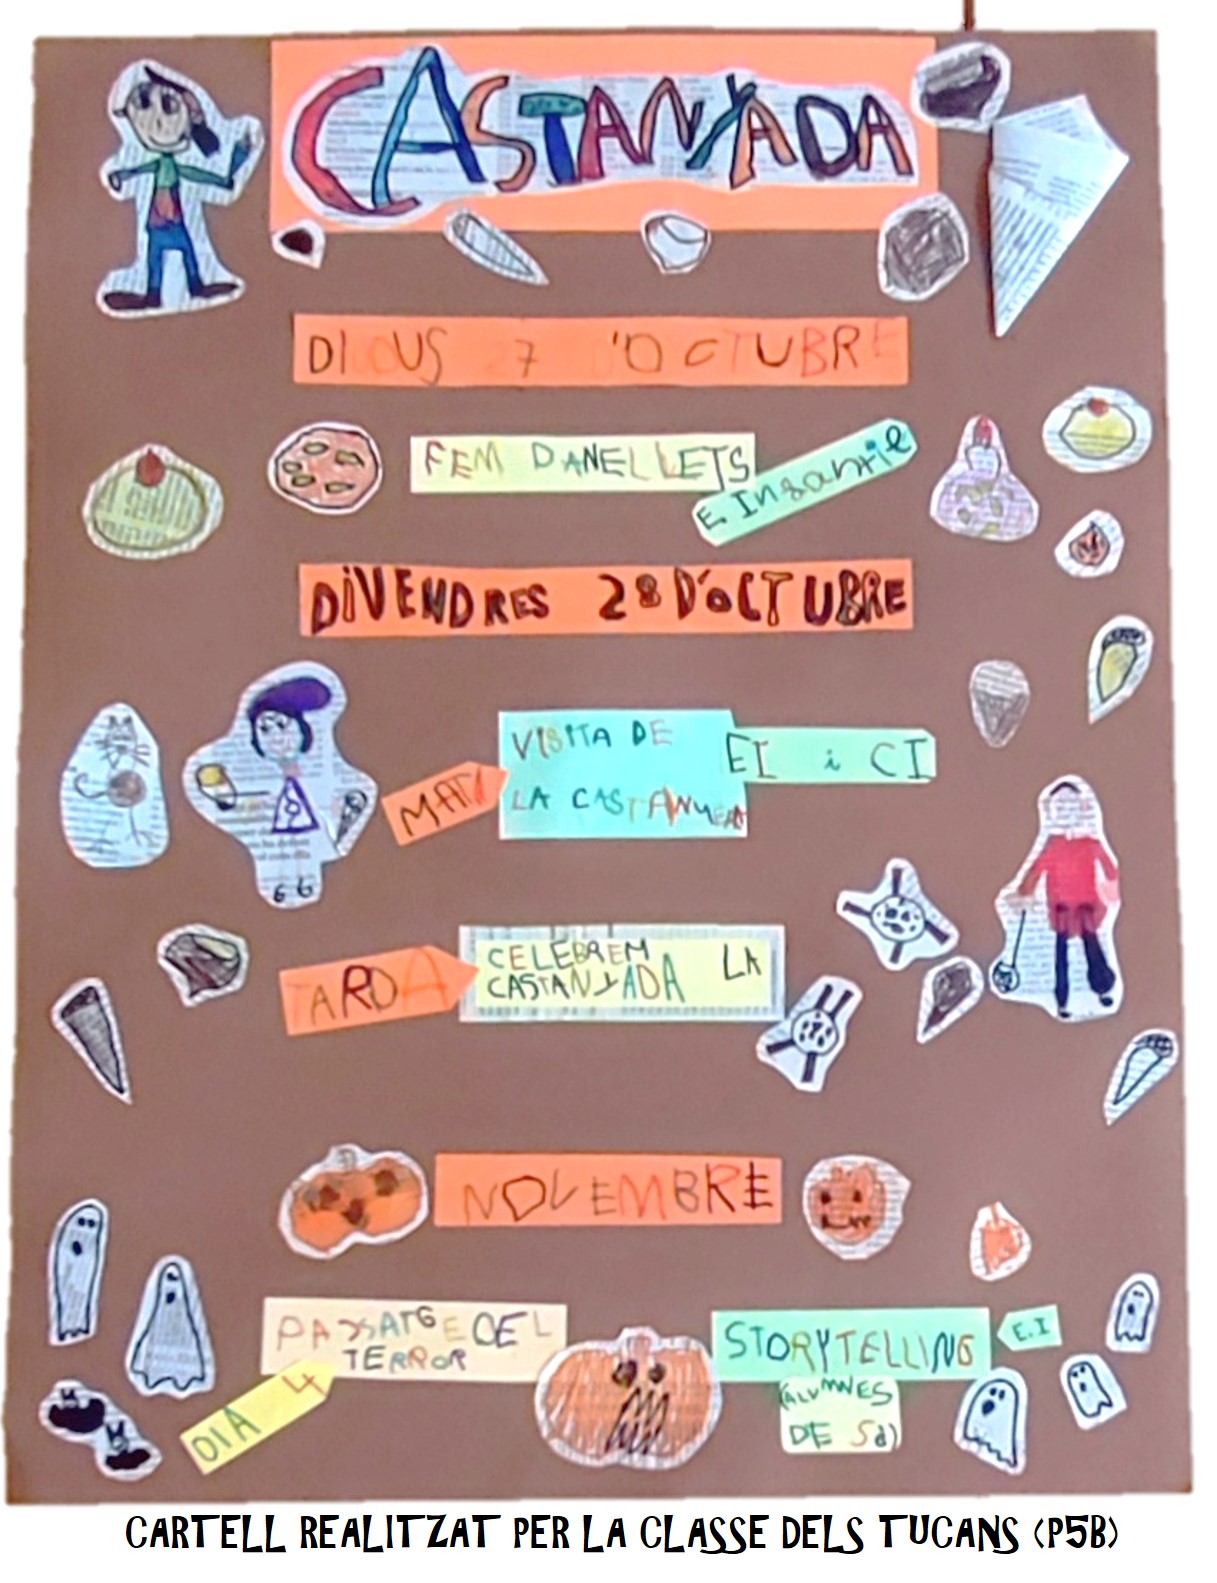 CASTANYADA
DIJOUS 27 D'OCTUBRE
FEM PANELLETS
E Infantil
DIVENDRES 28 D'OCTUBRE
MATÍ
VISITA DE
LA CASTANYERA
EI i CI
TARDA
CELEBREM LA
CASTANYADA
NOVEMBRE
PASSATGE DEL
TERROR
DIA 4
STORYTELLING
E.I
(ALUMNES
DE 5è)
CARTELL REALITZAT PER LA CLASSE DELS TUCANS (P5B)